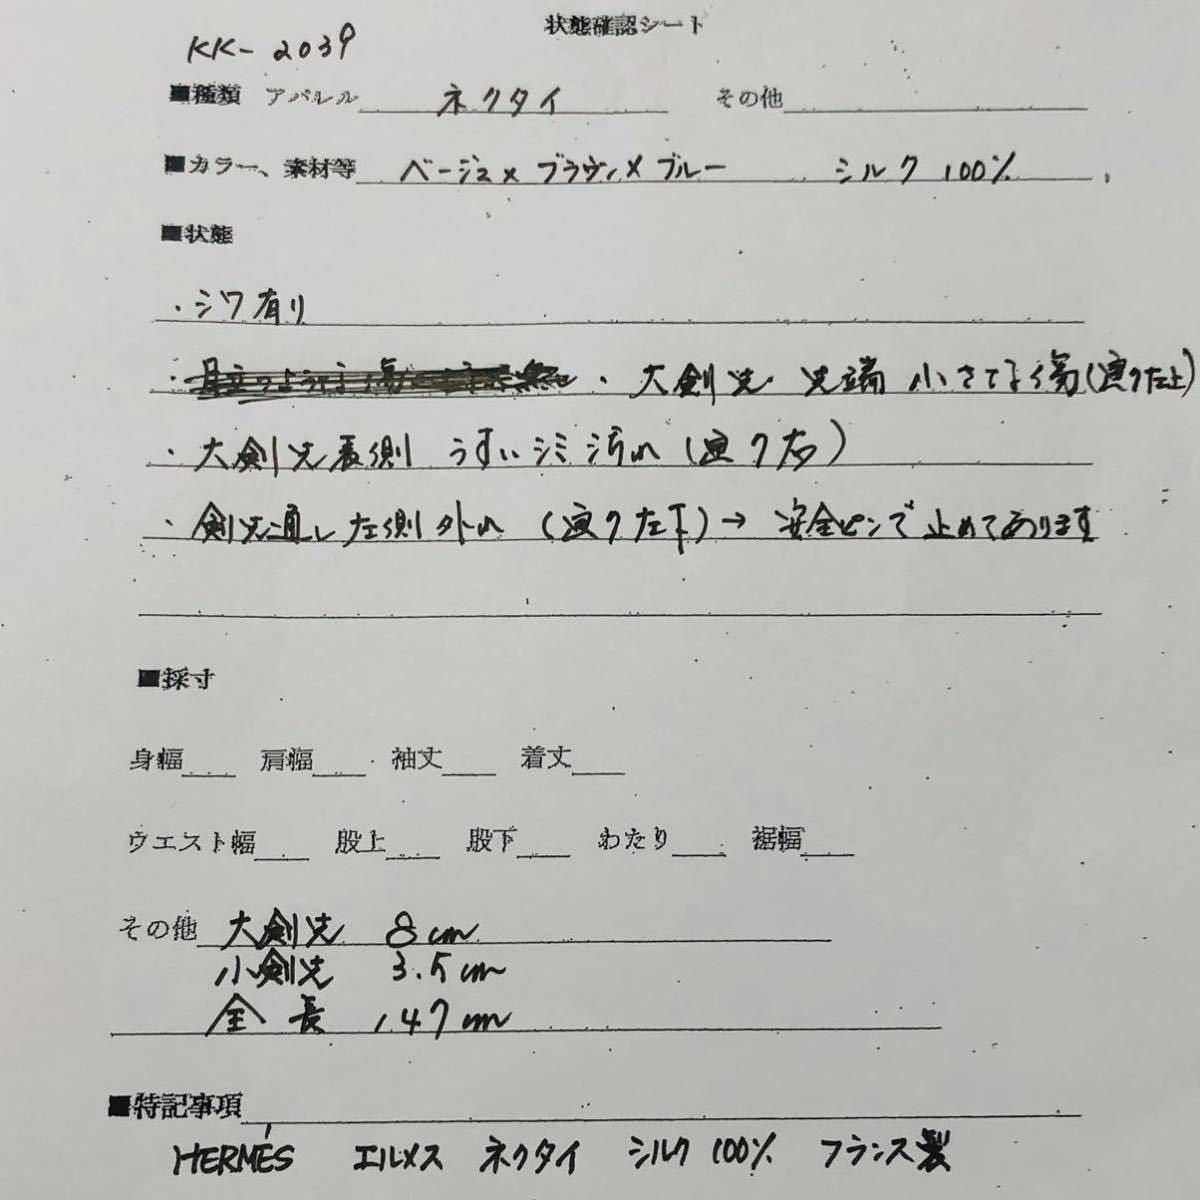 状態確認シート
KK-2039
■種類 アパレル ネクタイ その他
■カラー、素材等 ベージュ×ブラウン×ブルー シルク 100%
■状態
・シワ有り
・大剣先 先端 小さな傷(画ク左上)
・大剣先裏側 うすいシミ汚れ(画ク右)
・剣先通し左側外れ(画ク左下)→ 安全ピンで止めてあります
■採寸
身幅 肩幅 袖丈 着丈
ウエスト幅 股上 股下 わたり 裾幅
その他 大剣先 8cm
小剣先 3.5cm
全長 147cm
■特記事項
HERMÈS エルメス ネクタイ シルク100% フランス製